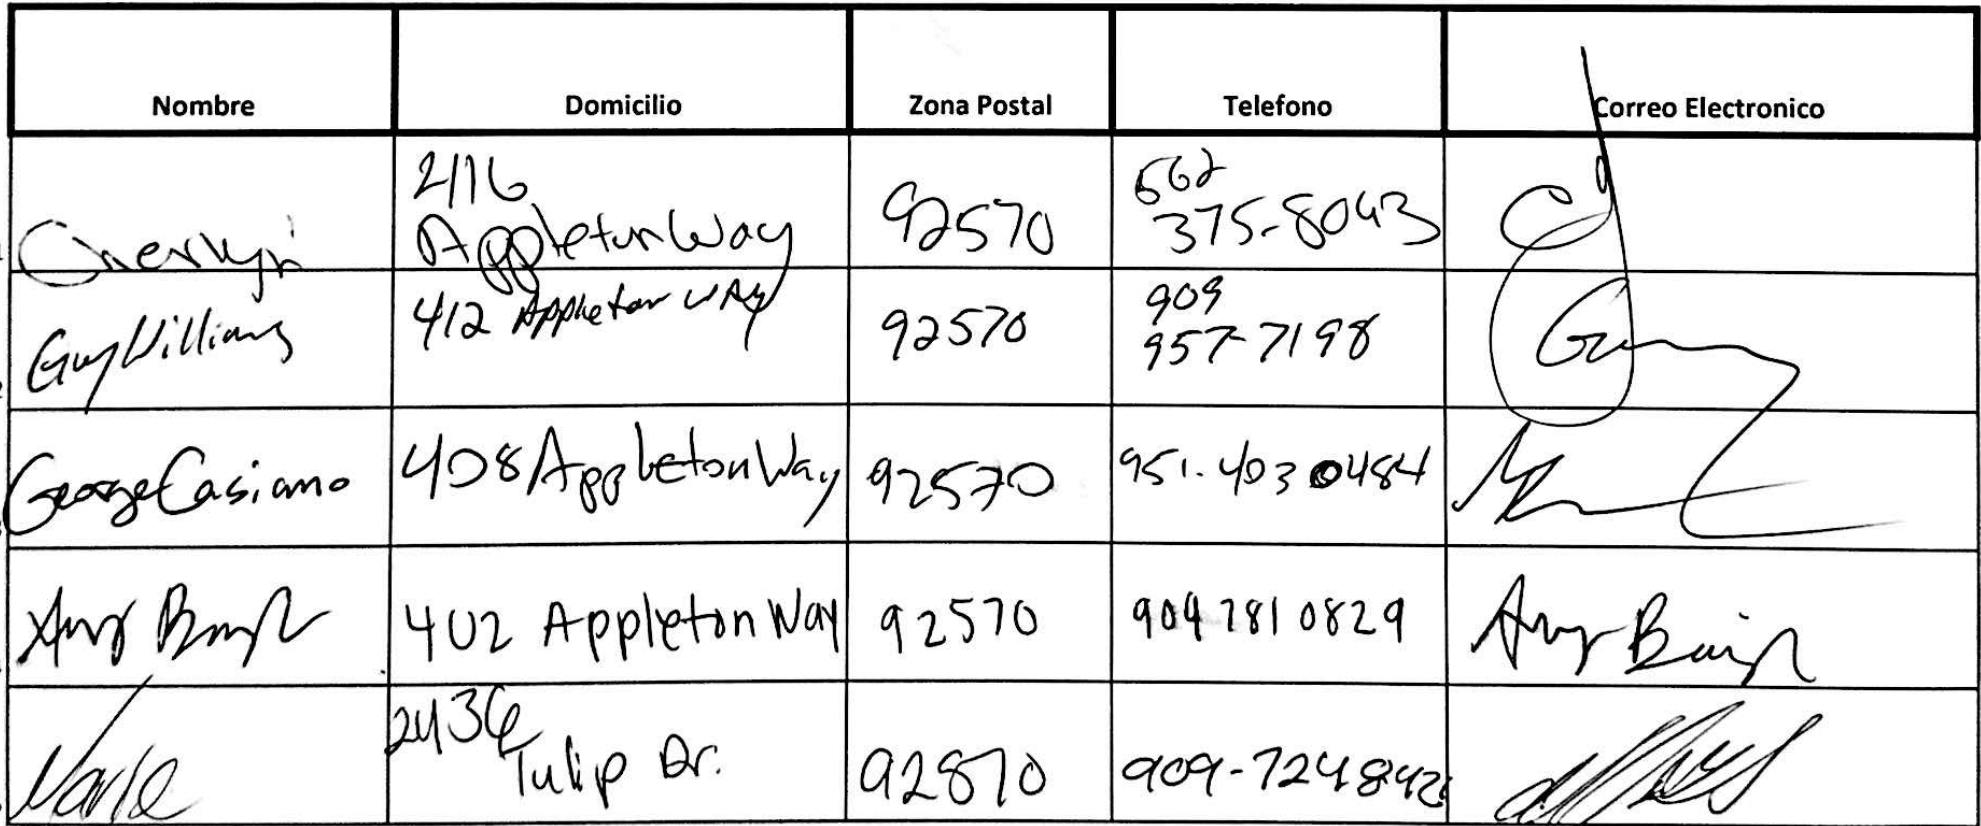 Nombre Domicilio Zona Postal Telefono Correo Electronico
2116 562
Appleton Way 92570 375-8043
Guy Williams 412 Appleton WAY 92570 909
957-7198
George Casiano 408 Appleton Way 92570 951.403 0484
402 Appleton Way 92570 909 781 0829
2436
Tulip Dr. 92870 909-724842